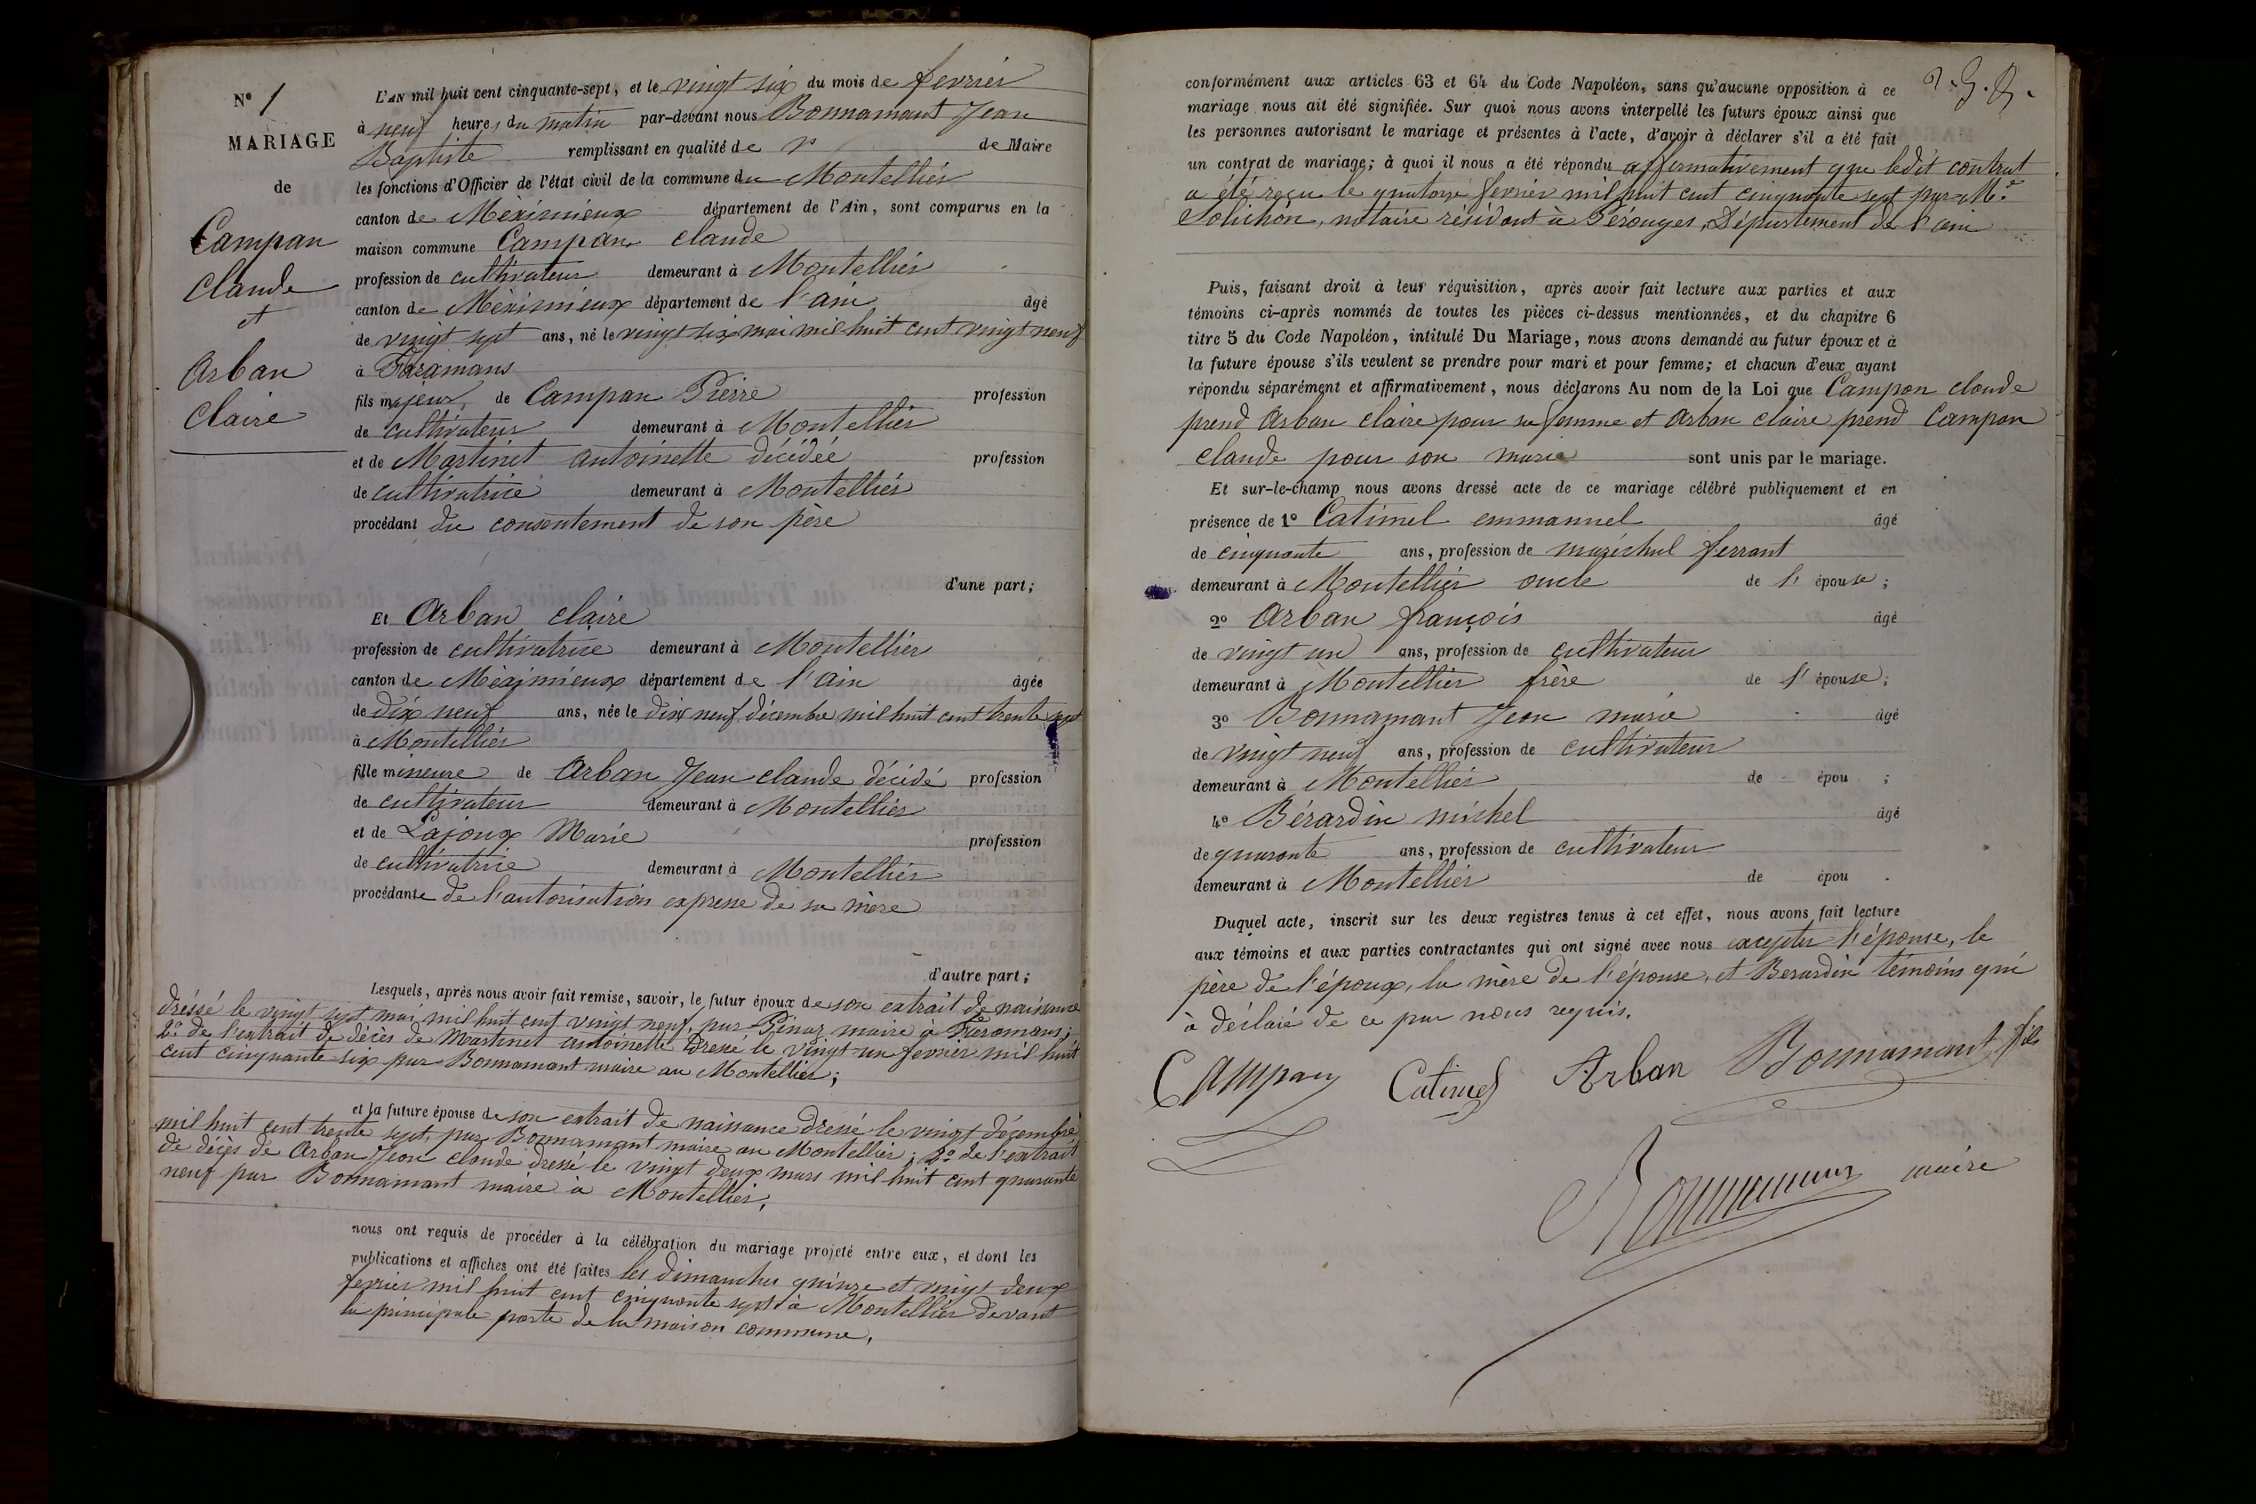 N° 1
MARIAGE
de
Campan
Claude
et
Arban
Claire
L'AN mil huit cent cinquante-sept, et le vingt six du mois de fevrier
à neuf heures du matin par-devant nous Bonnamant Jean
Baptiste remplissant en qualité de de Maire
les fonctions d'Officier de l'état civil de la commune du Montellier
canton de Méximieux département de l'Ain, sont comparus en la
maison commune Campan Claude
profession de cultivateur demeurant à Montellier
canton de Méximieux département de l'ain âgé
de vingt sept ans, né le vingt six mai mil huit cent vingt neuf
à Faramans
fils majeur de Campan Pierre profession
de cultivateur demeurant à Montellier
et de Martinet antoinette décédée profession
de cultivatrice demeurant à Montellier
procédant du consentement de son père
d'une part;
Et Arban Claire
profession de cultivatrice demeurant à Montellier
canton de Méximieux département de l'ain âgée
de dix neuf ans, née le dix neuf décembre mil huit cent trente sept
à Montellier
fille mineure de Arban Jean claude décédé profession
de cultivateur demeurant à Montellier
et de Lajoux Marie profession
de cultivatrice demeurant à Montellier
procédante de l'autorisation expresse de sa mère
d'autre part;
Lesquels, après nous avoir fait remise, savoir, le futur époux de son extrait de naissance
dréssé le vingt sept mai mil huit cent vingt neuf, par maire à Faramans;
2° de l'extrait de décès de Martinet antoinette Dressé le vingt un fevrier mil huit
cent cinquante six par Bonnamant maire au Montellier;
et la future épouse de son extrait de naissance dressé le vingt décembre
mil huit cent trente sept, par Bonnamant maire au Montellier; 2° de l'extrait
de décès de Arban Jean claude dressé le vingt deux mars mil huit cent quarante
neuf par Bonnamant maire à Montellier,
nous ont requis de procéder à la célébration du mariage projeté entre eux, et dont les
publications et affiches ont été faites les dimanches quinze et vingt deux
fevrier mil huit cent cinquante sept à Montellier devant
la principale porte de la maison commune,
conformément aux articles 63 et 64 du Code Napoléon, sans qu'aucune opposition à ce
mariage nous ait été signifiée. Sur quoi nous avons interpellé les futurs époux ainsi que
les personnes autorisant le mariage et présentes à l'acte, d'avoir à déclarer s'il a été fait
un contrat de mariage; à quoi il nous a été répondu affirmativement que ledit contrat
a été reçu le quatorze fevrier mil huit cent cinquante sept par Me
notaire résidant à Pérouges, Département de l'ain
Puis, faisant droit à leur réquisition, après avoir fait lecture aux parties et aux
témoins ci-après nommés de toutes les pièces ci-dessus mentionnées, et du chapitre 6
titre 5 du Code Napoléon, intitulé Du Mariage, nous avons demandé au futur époux et à
la future épouse s'ils veulent se prendre pour mari et pour femme; et chacun d'eux ayant
répondu séparément et affirmativement, nous déclarons Au nom de la Loi que Campan claude
prend Arban claire pour sa femme et Arban claire prend Campan
claude pour son marie sont unis par le mariage.
Et sur-le-champ nous avons dressé acte de ce mariage célébré publiquement et en
présence de 1° Catimel emmanuel âgé
de cinquante ans, profession de maréchal ferrant
demeurant à Montellier oncle de l' épouse;
2° Arban françois âgé
de vingt un ans, profession de cultivateur
demeurant à Montellier frère de l' épouse;
3° Bonnamant Jean marie âgé
de vingt neuf ans, profession de cultivateur
demeurant à Montellier de épou ;
4° Bérardin michel âgé
de quarante ans, profession de cultivateur
demeurant à Montellier de épou .
Duquel acte, inscrit sur les deux registres tenus à cet effet, nous avons fait lecture
aux témoins et aux parties contractantes qui ont signé avec nous excepter l'épouse, le
père de l'époux, la mère de l'épouse, et Berardin témoins qui
à déclaié de ce par nous requis.
Campan Catimel Arban Bonnamant fils
Bonnamant maire